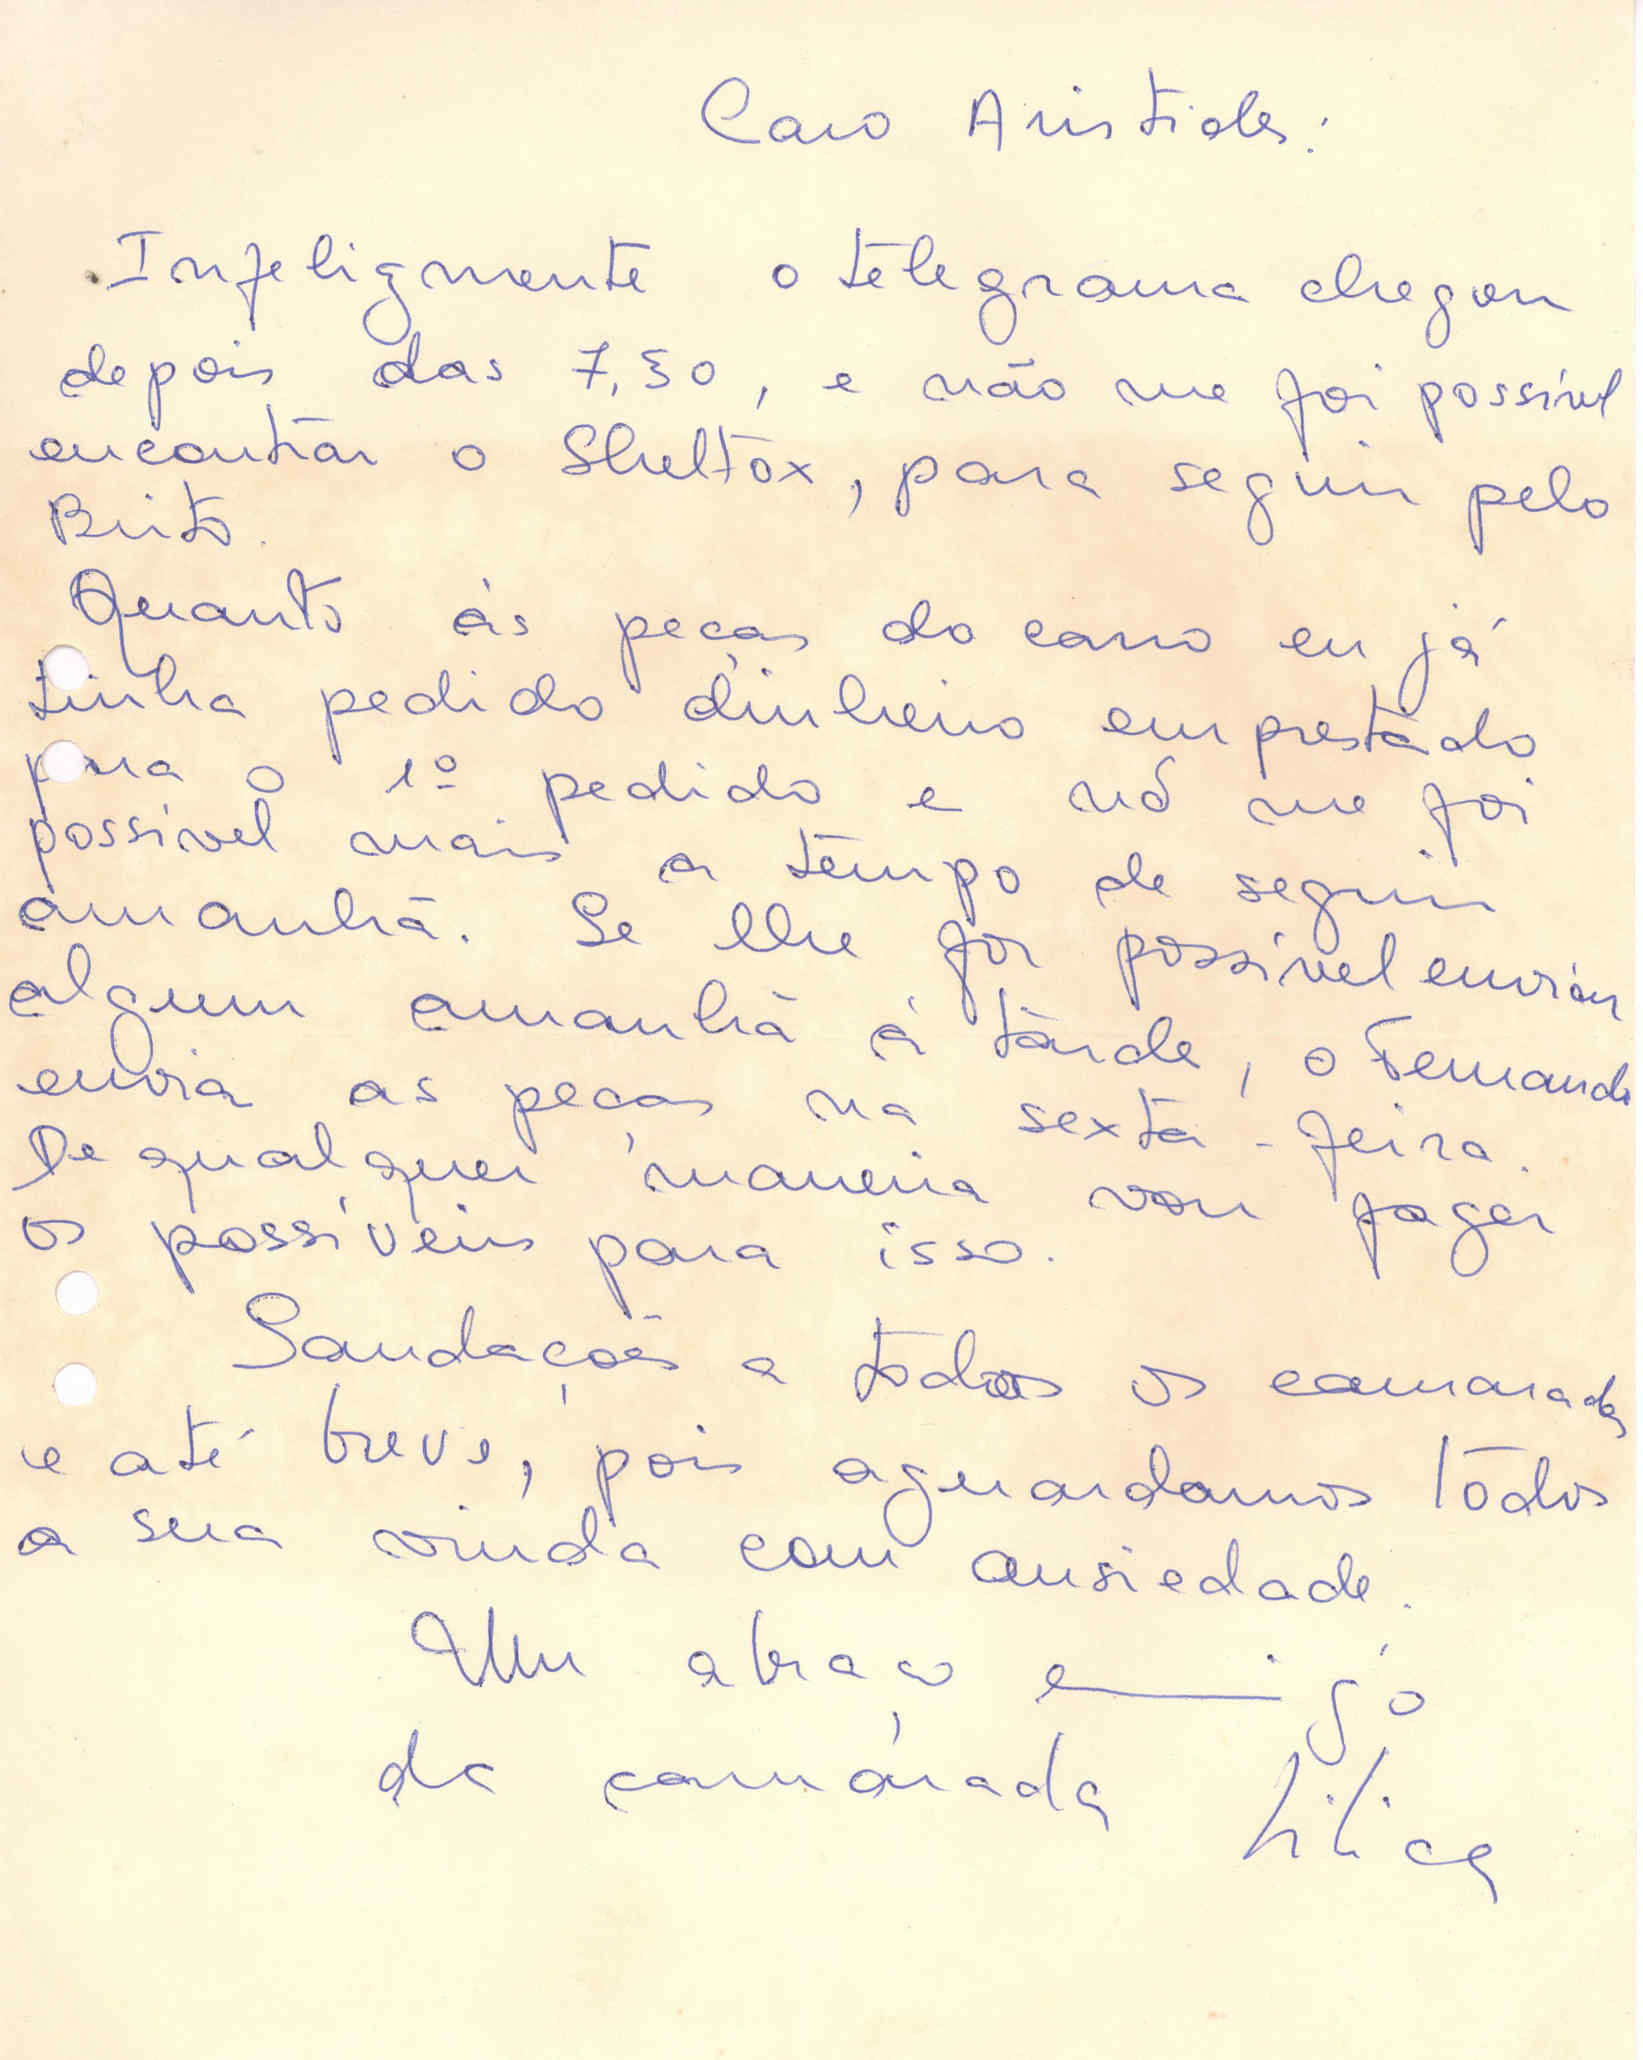 Caro Aristides:
Infelizmente o telegrama chegou
depois das 7,30, e não me foi possível
encontrar o Sheltox, para seguir pelo
Brito.
Quanto às peças do carro eu já
tinha pedido dinheiro emprestado
para o 1º pedido e nõ me foi
possível mais a tempo de seguir
amanhã. Se lhe for possível enviar
algum amanhã à tarde, o Fernando
envia as peças na sexta-feira.
De qualquer maneira vou fazer
os possíveis para isso.
Saudações a todos os camaradas
e até breve, pois aguardamos todos
a sua vinda com ansiedade.
Um abraço
da camarada Lilica